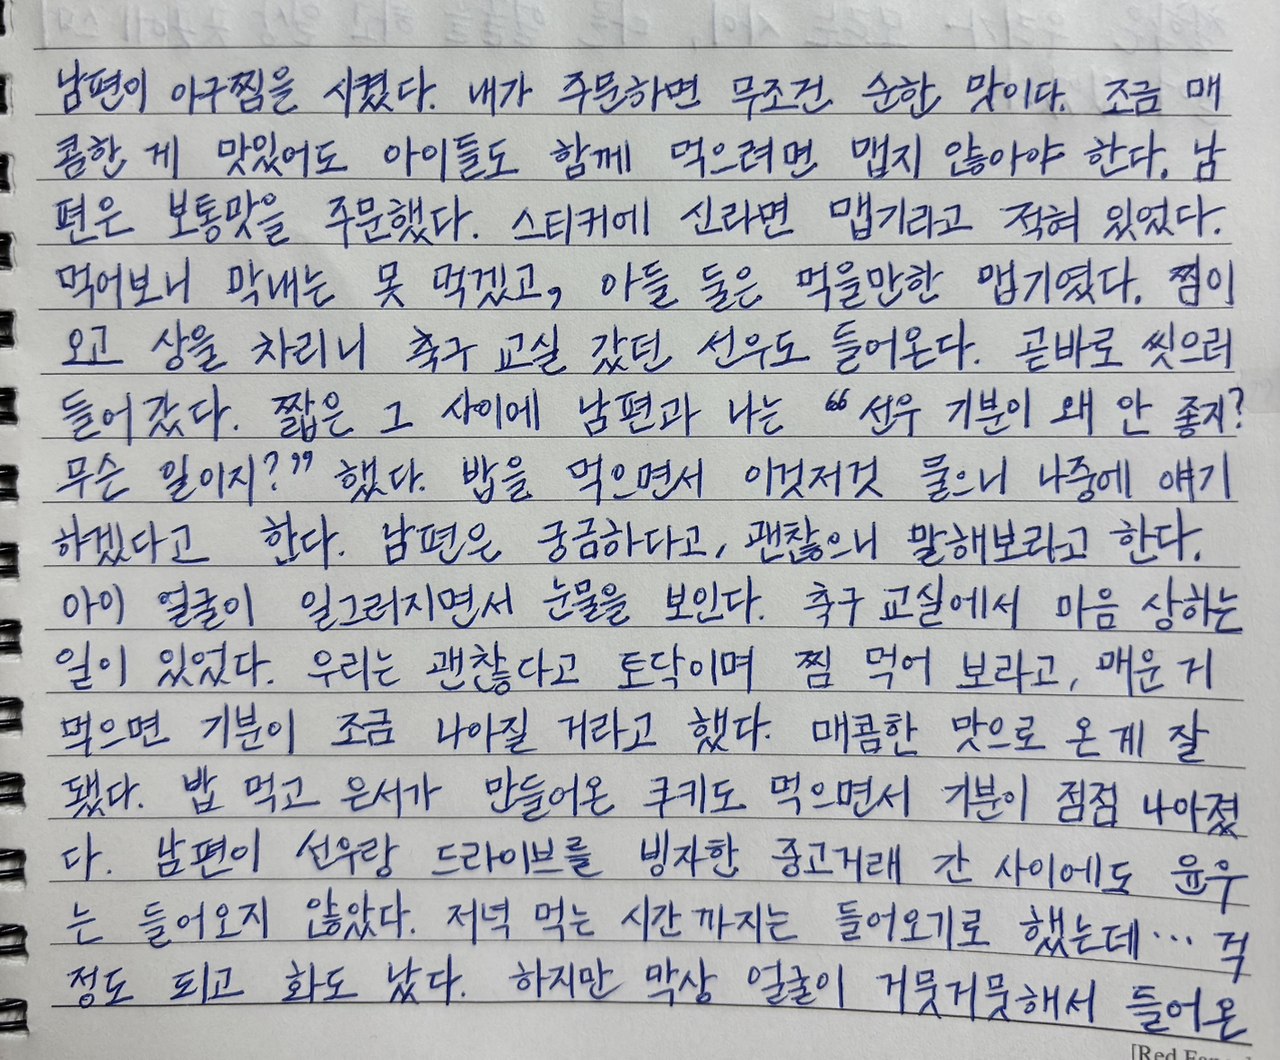 남편이 아구찜을 시켰다. 내가 주문하면 무조건 순한 맛이다. 조금 매
콤한 게 맛있어도 아이들도 함께 먹으려면 맵지 않아야 한다. 남
편은 보통맛을 주문했다. 스티커에 신라면 맵기라고 적혀 있었다.
먹어보니 막내는 못 먹겠고, 아들 둘은 먹을만한 맵기였다. 찜이
오고 상을 차리니 축구 교실 갔던 선우도 들어온다. 곧바로 씻으러
들어갔다. 짧은 그 사이에 남편과 나는 “선우 기분이 왜 안 좋지?
무슨 일이지?” 했다. 밥을 먹으면서 이것저것 물으니 나중에 얘기
하겠다고 한다. 남편은 궁금하다고, 괜찮으니 말해보라고 한다.
아이 얼굴이 일그러지면서 눈물을 보인다. 축구 교실에서 마음 상하는
일이 있었다. 우리는 괜찮다고 토닥이며 찜 먹어 보라고, 매운 거
먹으면 기분이 조금 나아질 거라고 했다. 매콤한 맛으로 온 게 잘
됐다. 밥 먹고 은서가 만들어온 쿠키도 먹으면서 기분이 점점 나아졌
다. 남편이 선우랑 드라이브를 빙자한 중고거래 간 사이에도 윤우
는 들어오지 않았다. 저녁 먹는 시간까지는 들어오기로 했는데··· 걱
정도 되고 화도 났다. 하지만 막상 얼굴이 거뭇거뭇해서 들어온
[Red